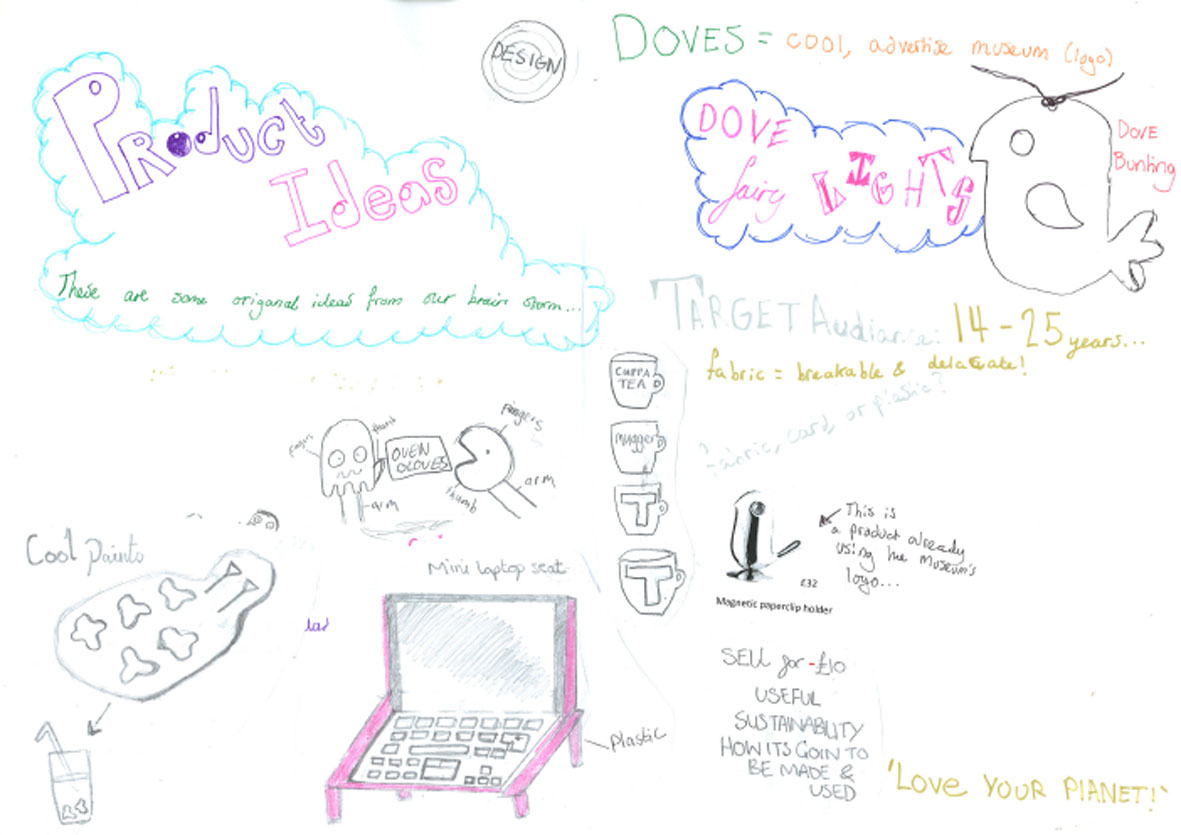 DESIGN
Product
Ideas
These are some origanal ideas from our brain storm...
DOVES = COOL, advertise museum (logo)
DOVE
fairy LIGHTS
DOVE
Bunting
TARGET Audiance: 14-25 years...
fabric = breakable &
Fabric, card, or plastic?
CUPPA
TEA
mugger
T
T
fingers
thumb
OVEN
GLOVES
arm
fingers
thumb
arm
This is
a product already
using the museum's
logo...
£32
Magnetic paperclip holder
Cool paints
Mini laptop seat
plastic
SELL for -£10
USEFUL
SUSTAINABILITY
HOW ITS GOIN TO
BE MADE &
USED
'LOVE YOUR PLANET!'